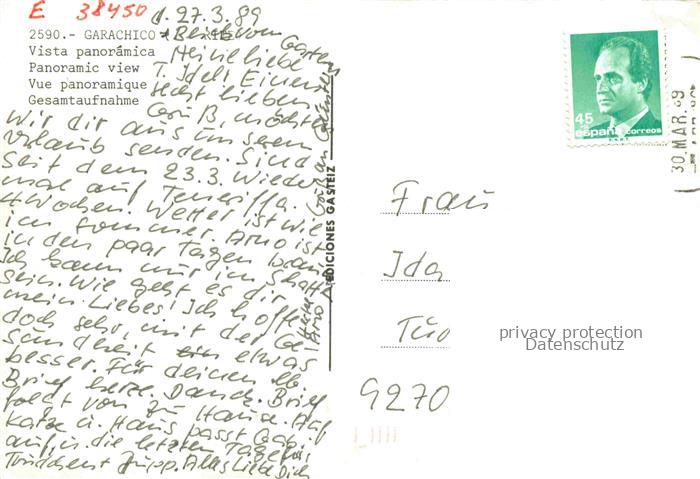 E 38450
d. 27.3.89
2590.- GARACHICO
Vista panorámica
Panoramic view
Vue panoramique
Gesamtaufnahme
Meine liebe
T. Ida! Einen
recht lieben
Gruß, möchte
wir dir aus unserem
Urlaub senden. Sind
seit dem 23.3. wieder
mal auf Teneriffa.
4 Wochen. Wetter ist wie
im Sommer. Arno ist
in den paar Tagen braun
Ich kann nur im Schatten
sein. Wie geht es dir
mein Liebes! Ich hoffe
doch sehr, mit der Ge-
sundheit ein etwas
besser. Für deinen lb.
Brief herzl. Dank. Brief
folgt von zu Hause. Auf
Katze u. Haus passt Gabi
auf, u. die letzten Tage
Jupp. Alles Liebe Dich
Arno
EDICIONES GASTEIZ
45
españa correos
30 MAR. 89
Frau
Ida
9270
privacy protection
Datenschutz